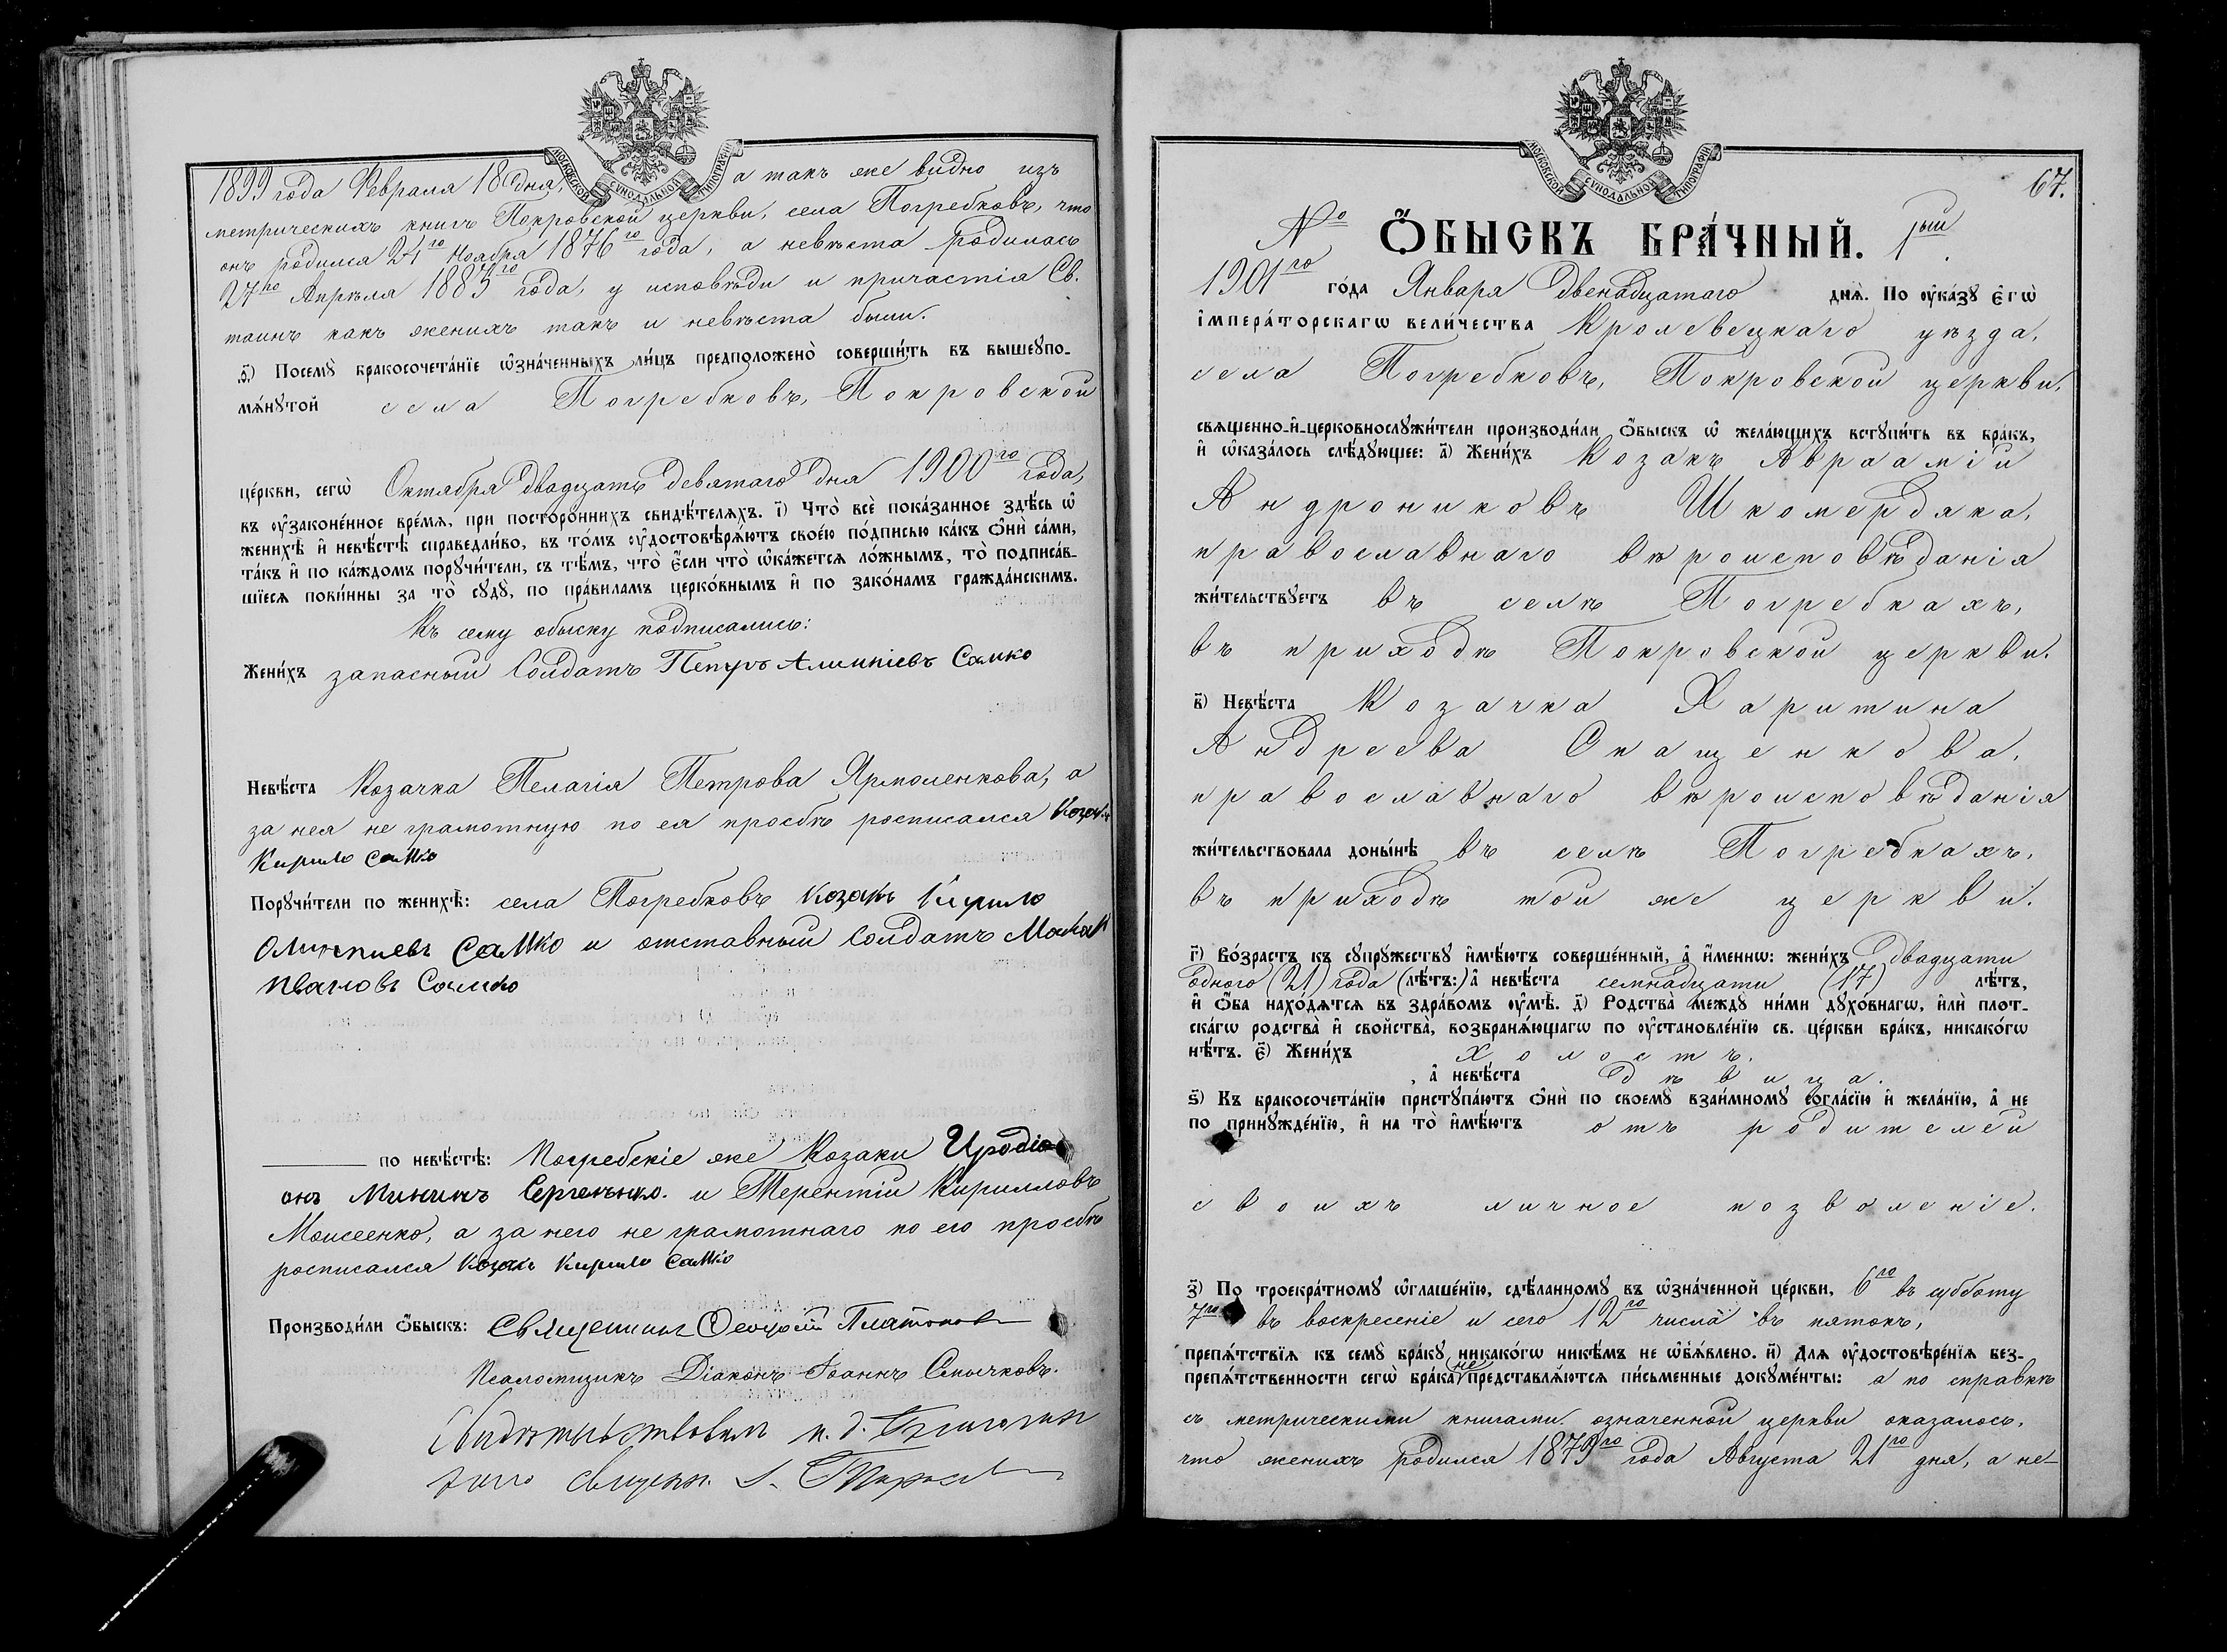 МОСКОВСКОЙ СѴНОДАЛЬНОЙ ТИПОГРАФІИ
1899 года Февраля 18 дня, а такъ же видно изъ
метрическихъ книгъ Покровской церкви, села Погребковъ, что
онъ родился 24го Ноября 1876го года, а невѣста родилась
27го Апрѣля 1883го года, у исповѣди и причастія Св.
таинъ какъ женихъ такъ и невѣста были.
ѳ҃) Посемꙋ̀ бракосочета́нїе ѡ҆зна́ченныхъ ли́цъ предположено̀ соверши́ть въ вышеꙋпо-
мѧ́нꙋтой села Погребковъ, Покровской
це́ркви, сегѡ̀ Октября двадцать девятаго дня 1900го года,
въ ᲂу҆законе́нное вре́мѧ, при посторо́ннихъ свидѣ́телѧхъ. і҃) Что̀ всѐ пока́занное здѣ́сь ѡ҆
женихѣ̀ и҆ невѣ́стѣ справедли́во, въ то́мъ ᲂу҆достовѣрѧ́ютъ свое́ю по́дписью ка́къ ѻ҆нѝ са́ми,
та́къ и҆ по ка́ждомъ порꙋчи́тели, съ тѣ́мъ, что̀ є҆́сли что̀ ѡ҆ка́жетсѧ ло́жнымъ, то̀ подписа́в-
шїесѧ пови́нны за то̀ сꙋдꙋ̀, по пра́виламъ церко́внымъ и҆ по зако́намъ гражда́нскимъ.
Къ сему обыску подписались:
Жени́хъ запасный Солдатъ Петръ Алимпіевъ Самко
Невѣ́ста Козачка Пелагія Петрова Ярмоленкова, а
за нея не грамотную по ея просьбѣ росписался Козакъ
Кирило Самко
Порꙋчи́тели по женихѣ̀: села Погребковъ Козакъ Кирило
Олимпиевъ Самко и отставный Солдатъ
Ивановъ Самко
по невѣ́стѣ: Погребскіе же Козаки Ироді
онъ Мининъ Сергіенько. и Терентій Кирилловъ
Моисеенко, а за него не грамотнаго по его просьбѣ
росписался Козакъ Кирило Самко
Производи́ли ѻ҆́быскъ: Священникъ Платонов
Псаломщикъ Діаконъ Іоаннъ Смычковъ.
Свидѣтельствовалъ и. д. Благочин
наго священн.
МОСКОВСКОЙ СѴНОДАЛЬНОЙ ТИПОГРАФІИ
67.
№ Ѻ҆́БЫСКЪ БРА́ЧНЫЙ. 1ый.
1901го го́да Января двенадцатаго днѧ̀. По ᲂу҆ка́зꙋ є҆гѡ̀
і҆мпера́торскагѡ вели́чества Кролевецкаго уѣзда,
села Погребковъ, Покровской церкви,
свѧщенно-и҆-церковнослꙋжи́тели производи́ли ѻ҆́быскъ ѡ҆ жела́ющихъ встꙋпи́ть въ бра́къ,
и҆ ѡ҆каза́лось слѣ́дꙋющее: а҃) Жени́хъ Козакъ Авраамій
Андрониковъ Шкомердяка,
православнаго вѣроисповѣданія
жи́тельствꙋетъ въ селѣ Погребкахъ,
въ приходѣ Покровской церкви.
в҃) Невѣ́ста Козачка Харитина
Андреева Опащенкова,
православнаго вѣроисповѣданія
жи́тельствовала доны́нѣ въ селѣ Погребкахъ,
въ приходѣ той же церкви.
г҃) Во́зрастъ къ сꙋпрꙋ́жествꙋ и҆мѣ́ютъ соверше́нный, а҆ и҆́меннѡ: жени́хъ двадцати
одного (21) года (лѣ́тъ:) а҆ невѣ́ста семнадцати (17) лѣ́тъ,
и҆ ѻ҆́ба нахо́дѧтсѧ въ здра́вомъ ᲂу҆мѣ̀. д҃) Родства̀ междꙋ̀ ни́ми дꙋхо́внагѡ, и҆лѝ плот-
ска́гѡ родства̀ и҆ свойства̀, возбранѧ́ющагѡ по ᲂу҆становле́нїю св. це́ркви бра́къ, никако́гѡ
нѣ́тъ. є҃) Жени́хъ холостъ,
, а҆ невѣ́ста дѣвица.
ѕ҃) Къ бракосочета́нїю пристꙋпа́ютъ ѻ҆нѝ по своемꙋ̀ взаи́мномꙋ согла́сїю и҆ жела́нїю, а҆ не
по принꙋжде́нїю, и҆ на то̀ и҆мѣ́ютъ отъ родителей
своихъ личное позволеніе.
з҃) По троекра́тномꙋ ѡ҆глаше́нїю, сдѣ́ланномꙋ въ ѡ҆зна́ченной це́ркви, 6го въ субботу
7го въ воскресеніе и сего 12го числа въ пятокъ,
препѧ́тствїѧ къ семꙋ̀ бра́кꙋ никако́гѡ никѣ́мъ не ѡ҆б̾ѧ́влено. и҃) Длѧ ᲂу҆достовѣре́нїѧ без-
препѧ́тственности сегѡ̀ бра́ка не представлѧ́ютсѧ пи́сьменные докꙋме́нты: а по справкѣ
съ метрическими книгами означенной церкви оказалось,
что женихъ родился 1879го года Августа 21го дня, а не-